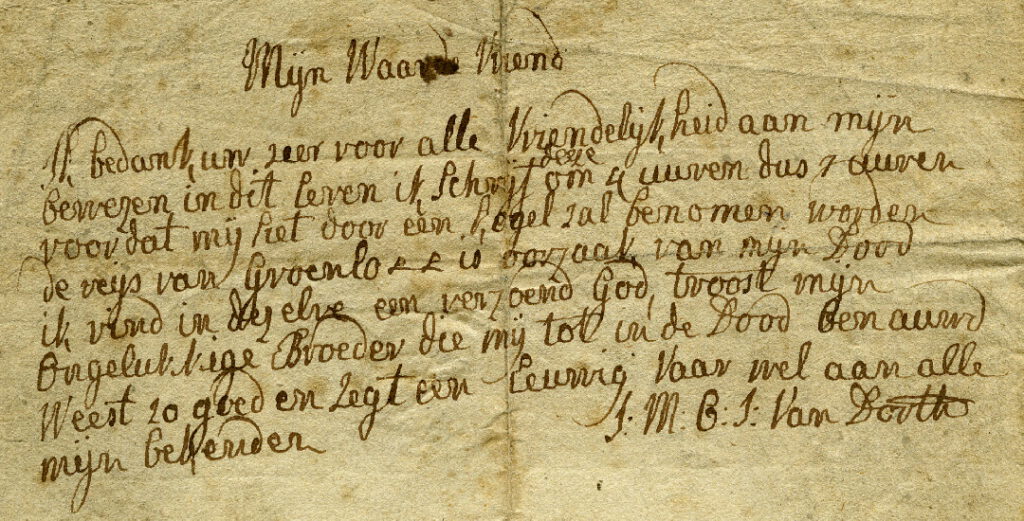 Mijn Waarde Vriend
Ik bedank uw zeer voor alle Vriendelijkheid aan mijn
bewezen in dit Leven ik schrijf deze om 4 uuren dus 2 uuren
voor dat mij het door een kogel zal benomen worden
de reijs van Groenlo is oorzaak van mijn Dood
ik vind in dezelve een verzoend God, troost mijn
Ongelukkige Broeder die mij tot in de Dood benauwd
Weest zo goed en zegt een Eeuwig Vaar wel aan alle
mijn bekenden
J: M: C: J: Van Dorth